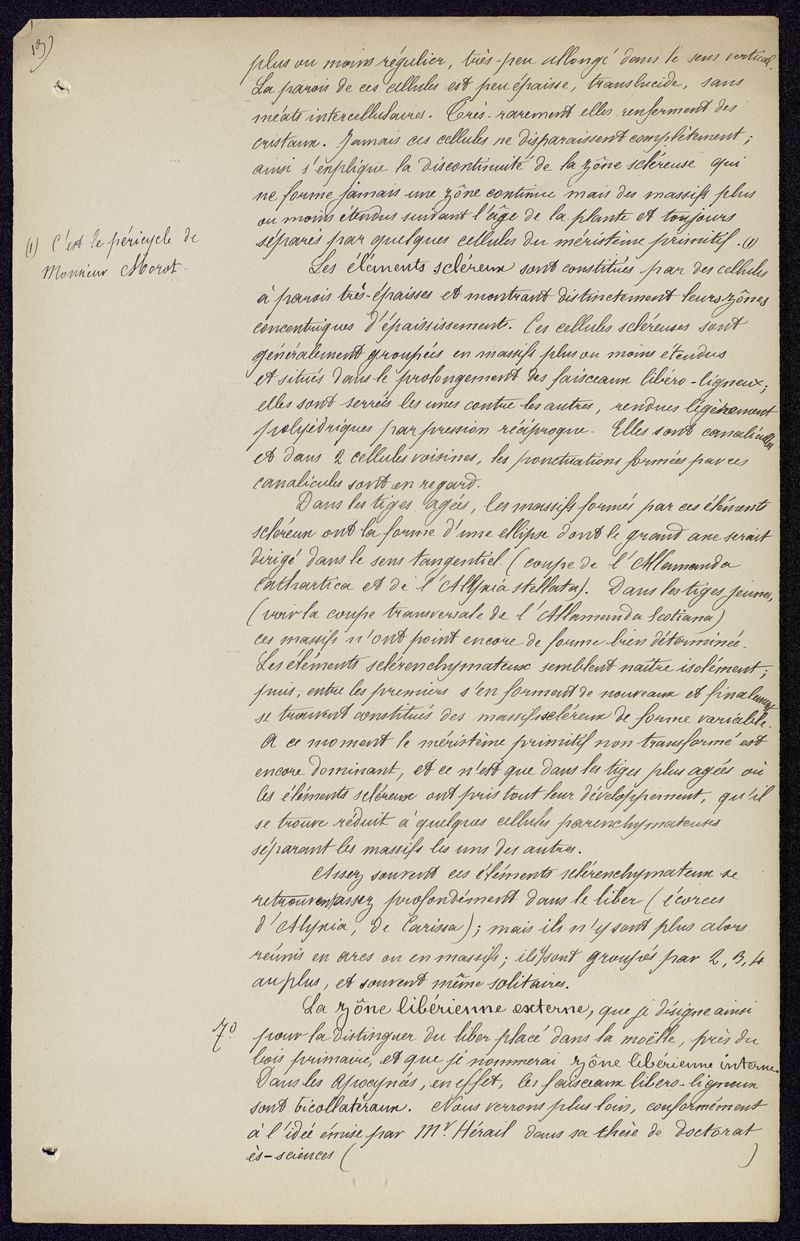 13)
plus ou moins régulier, très-peu allongé dans le sens vertical.
La parois de ces cellules est peu épaisse, translucide, sans
méats intercellulaires. Très-rarement elles renferment des
cristaux. Jamais ces cellules ne disparaissent complètement ;
ainsi s'explique la discontinuité de la zône scléreuse qui
ne forme jamais une zône continue mais des massifs plus
ou moins étendus suivant l'âge de la plante et toujours
séparés par quelques cellules du méristème primitif. (1)
(1) C'est le péricycle de
Monsieur Morot.
Les éléments scléreux sont constitués par des cellules
à parois très-épaisses et montrant distinctement leurs zônes
concentriques d'épaississement. Ces cellules scléreuses sont
généralement groupées en massifs plus ou moins étendus
et situés dans le prolongement des faisceaux libéro-ligneux ;
elles sont serrées les unes contre les autres, rendues légèrement
polyédriques par pression réciproque. Elles sont canaliculées
et dans 2 cellules voisines, les ponctuations formées par ces
canalicules sont en regard.
Dans les tiges agées, les massifs formés par ces éléments
scléreux ont la forme d'une ellipse dont le grand axe serait
dirigé dans le sens tangentiel. (coupe de l'Allamanda
Cathartica et de l'Alyxia stellata). Dans les tiges jeunes,
(voir la coupe transversale de l'Allamanda Scotiana)
ces massifs n'ont point encore de forme bien déterminée.
Les éléments sclérenchymateux semblent naître isolément ;
puis, entre les premiers s'en forment de nouveaux et finalement
se trouvent constitués des massifs scléreux de forme variable.
A ce moment le méristème primitif non transformé est
encore dominant, et ce n'est que dans les tiges plus agées où
les éléments scléreux ont pris tout leur développement, qu'il
se trouve réduit à quelques cellules parenchymateuses
séparant les massifs les uns des autres.
Assez souvent ces éléments sclérenchymateux se
retrouvent assez profondément dans le liber (écorces
d'Alyxia, de Carissa) ; mais ils n'y sont plus alors
réunis en arcs ou en massifs ; ils y sont groupés par 2, 3, 4
au plus, et souvent même solitaires.
La zône libérienne externe, que je désigne ainsi
7º pour la distinguer du liber placé dans la moëlle, près du
bois primaire, et que je nommerai zône libérienne interne.
Dans les Apocynés, en effet, les faisceaux libero-ligneux
sont bicollatéraux. Nous verrons plus loin, conformément
à l'idée émise par Mr Hérail dans sa thèse de doctorat
ès-sciences ( )